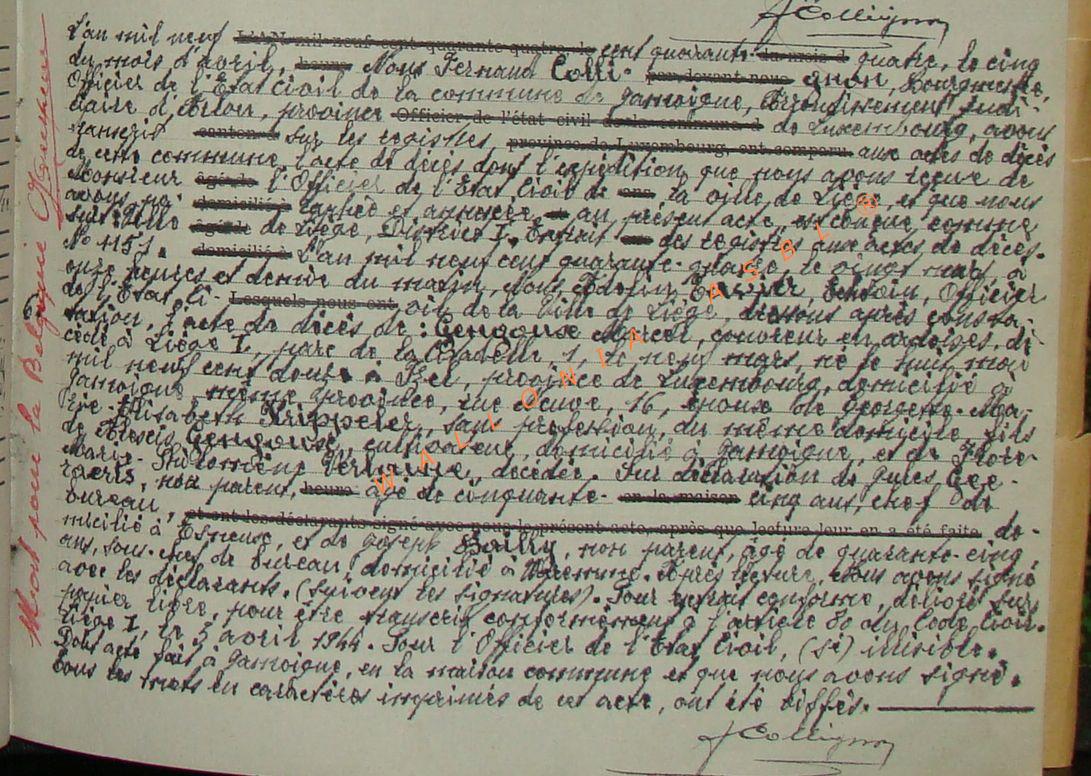 FCollignon
L'an mil neuf L'AN mil neuf cent quarante-quatre, le cent quarante- du mois d quatre, le cinq
du mois d'avril, heure Nous Fernand Colli- par devant nous gnon, Bourgmestre,
Officier de l'Etat Civil de la commune de Jamoigne, Arrondissement Judi-
ciaire d'Arlon, province Officier de l'état civil de la commune d de Luxembourg, avons
transcrit canton d sur les registres, province de Luxembourg, ont comparu aux actes de décès
de cette commune, l'acte de décès dont l'expédition que nous avons reçue de
Monsieur âgé de l'Officier de l'Etat Civil de ans, la ville de Liége, et que nous
avons, domicilié à et annexée au présent acte, est conçue comme
suit: Ville âgé de de Liége, District I. Extrait des registres aux actes de décès.
N° 1157. domicilié à L'an mil neuf cent quarante-quatre, le vingt mars, à
onze heures et demie du matin, Nous Echevin, Officier
de l'Etat Ci- Lesquels nous ont vil de la Ville de Liége, dressons après consta-
tation, l'acte de décès de: Gengoux Marcel, couvreur en ardoises, dé-
cédé à Liége I, parc de la Citadelle 1, le neuf mars, né le huit mai
mil neuf cent douze à Izel, province de Luxembourg, domicilié à
Jamoigne, même province, rue Neuve, 16, époux de Georgette-Ma-
rie-Elisabeth Krippeler, sans profession, du même domicile, fils
de Alexis Gengoux, cultivateur, domicilié à Jamoigne, et de Flore-
Marie-Philomène Verlaine, décédée. Sur déclaration de Jules Gee-
raerts, non parent, heure âgé de cinquante- en la maison cinq ans, chef de
bureau, et ont les déclarants signé avec nous le présent acte, après que lecture leur en a été faite do-
micilié à Esneux, et de Joseph Bailly, non parent, âgé de quarante-cinq
ans, sous-chef de bureau, domicilié à Waremme. Après lecture, Nous avons signé
avec les déclarants. (suivent les signatures). Pour extrait conforme, délivré sur
papier libre, pour être transcrit conformément à l'article 80 du Code Civil.
Liége I, le 3 avril 1944. Pour l'Officier de l'Etat Civil, (sé) illisible.
Dont acte fait à Jamoigne, en la maison commune et que nous avons signé.
Tous les mots en caractères imprimés de cet acte, ont été biffés.
FCollignon
Mort pour la Belgique
WALLONIA ASBL ®